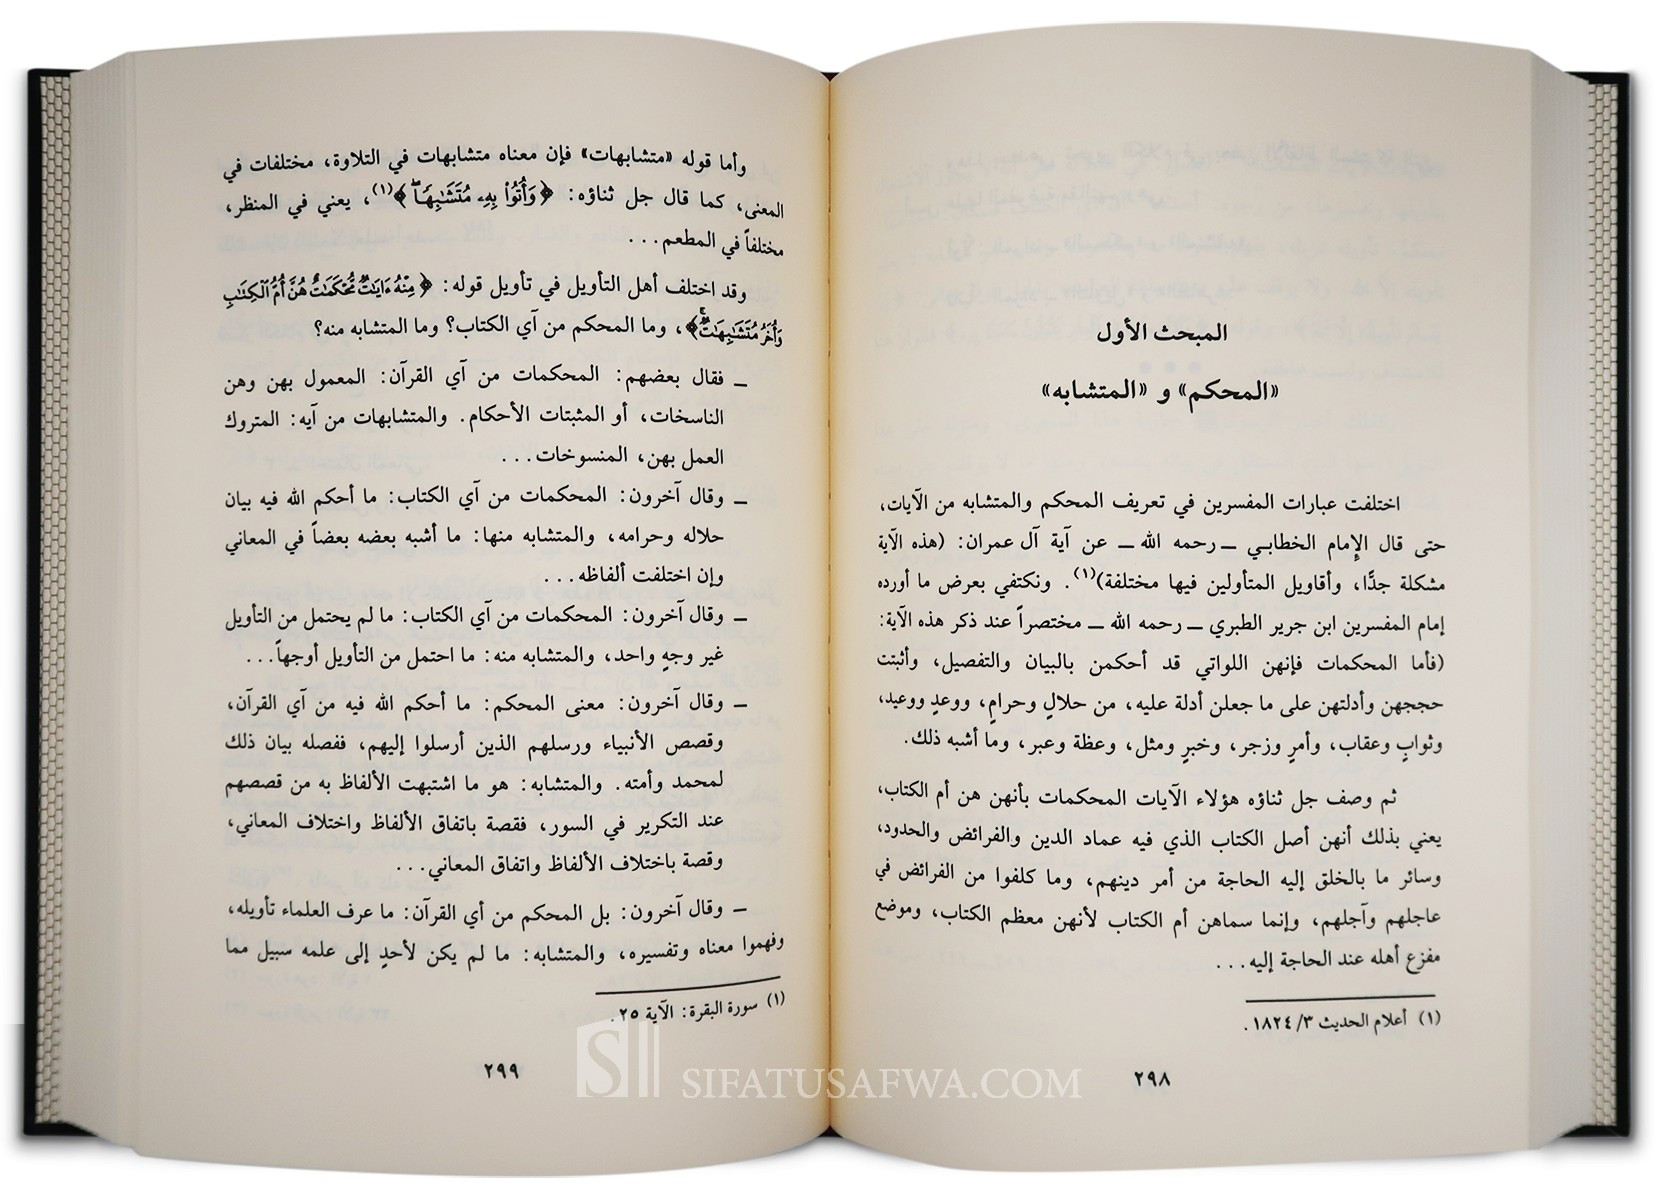 المبحث الأول
«المحكم» و «المتشابه»
اختلفت عبارات المفسرين في تعريف المحكم والمتشابه من الآيات،
حتى قال الإمام الخطابي ــ رحمه الله ــ عن آية آل عمران: (هذه الآية
مشكلة جدًّا، وأقاويل المتأولين فيها مختلفة)(١). ونكتفي بعرض ما أورده
إمام المفسرين ابن جرير الطبري ــ رحمه الله ــ مختصراً عند ذكر هذه الآية:
(فأما المحكمات فإنهن اللواتي قد أحكمن بالبيان والتفصيل، وأثبتت
حججهن وأدلتهن على ما جعلن أدلة عليه، من حلالٍ وحرامٍ، ووعدٍ ووعيد،
وثوابٍ وعقاب، وأمرٍ وزجر، وخبرٍ ومثل، وعظة وعبر، وما أشبه ذلك.
ثم وصف جل ثناؤه هؤلاء الآيات المحكمات بأنهن هن أم الكتاب،
يعني بذلك أنهن أصل الكتاب الذي فيه عماد الدين والفرائض والحدود،
وسائر ما بالخلق إليه الحاجة من أمر دينهم، وما كلفوا من الفرائض في
عاجلهم وآجلهم، وإنما سماهن أم الكتاب لأنهن معظم الكتاب، وموضع
مفزع أهله عند الحاجة إليه...
(١) أعلام الحديث ٣/ ١٨٢٤.
٢٩٨
وأما قوله «متشابهات» فإن معناه متشابهات في التلاوة، مختلفات في
المعنى، كما قال جل ثناؤه: ﴿وَأُتُوا۟ بِهِۦ مُتَشَٰبِهًا ۖ﴾(١)، يعني في المنظر،
مختلفاً في المطعم...
وقد اختلف أهل التأويل في تأويل قوله: ﴿مِنْهُ ءَايَٰتٌ مُّحْكَمَٰتٌ هُنَّ أُمُّ ٱلْكِتَٰبِ
وَأُخَرُ مُتَشَٰبِهَٰتٌ ۖ﴾، وما المحكم من آي الكتاب؟ وما المتشابه منه؟
ــ فقال بعضهم: المحكمات من آي القرآن: المعمول بهن وهن
الناسخات، أو المثبتات الأحكام. والمتشابهات من آيه: المتروك
العمل بهن، المنسوخات...
ــ وقال آخرون: المحكمات من آي الكتاب: ما أحكم الله فيه بيان
حلاله وحرامه، والمتشابه منها: ما أشبه بعضه بعضاً في المعاني
وإن اختلفت ألفاظه...
ــ وقال آخرون: المحكمات من آي الكتاب: ما لم يحتمل من التأويل
غير وجهٍ واحد، والمتشابه منه: ما احتمل من التأويل أوجهاً...
ــ وقال آخرون: معنى المحكم: ما أحكم الله فيه من آي القرآن،
وقصص الأنبياء ورسلهم الذين أرسلوا إليهم، ففصله بيان ذلك
لمحمد وأمته. والمتشابه: هو ما اشتبهت الألفاظ به من قصصهم
عند التكرير في السور، فقصة باتفاق الألفاظ واختلاف المعاني،
وقصة باختلاف الألفاظ واتفاق المعاني...
ــ وقال آخرون: بل المحكم من أي القرآن: ما عرف العلماء تأويله،
وفهموا معناه وتفسيره، والمتشابه: ما لم يكن لأحدٍ إلى علمه سبيل مما
(١) سورة البقرة: الآية ٢٥.
٢٩٩
SIFATUSAFWA.COM